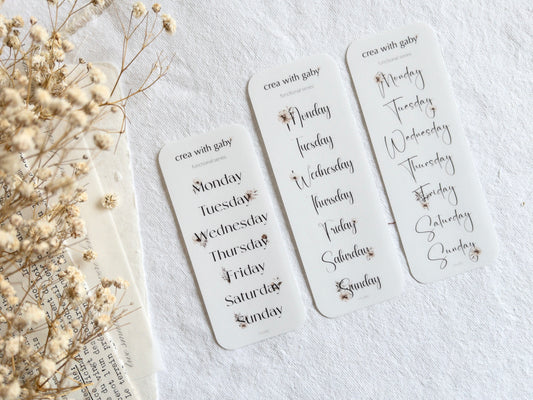 crea with gaby
functional series
Monday
Tuesday
Wednesday
Thursday
Friday
Saturday
Sunday
crea with gaby
functional series
Monday
Tuesday
Wednesday
Thursday
Friday
Saturday
Sunday
crea with gaby
functional series
Monday
Tuesday
Wednesday
Thursday
Friday
Saturday
Sunday